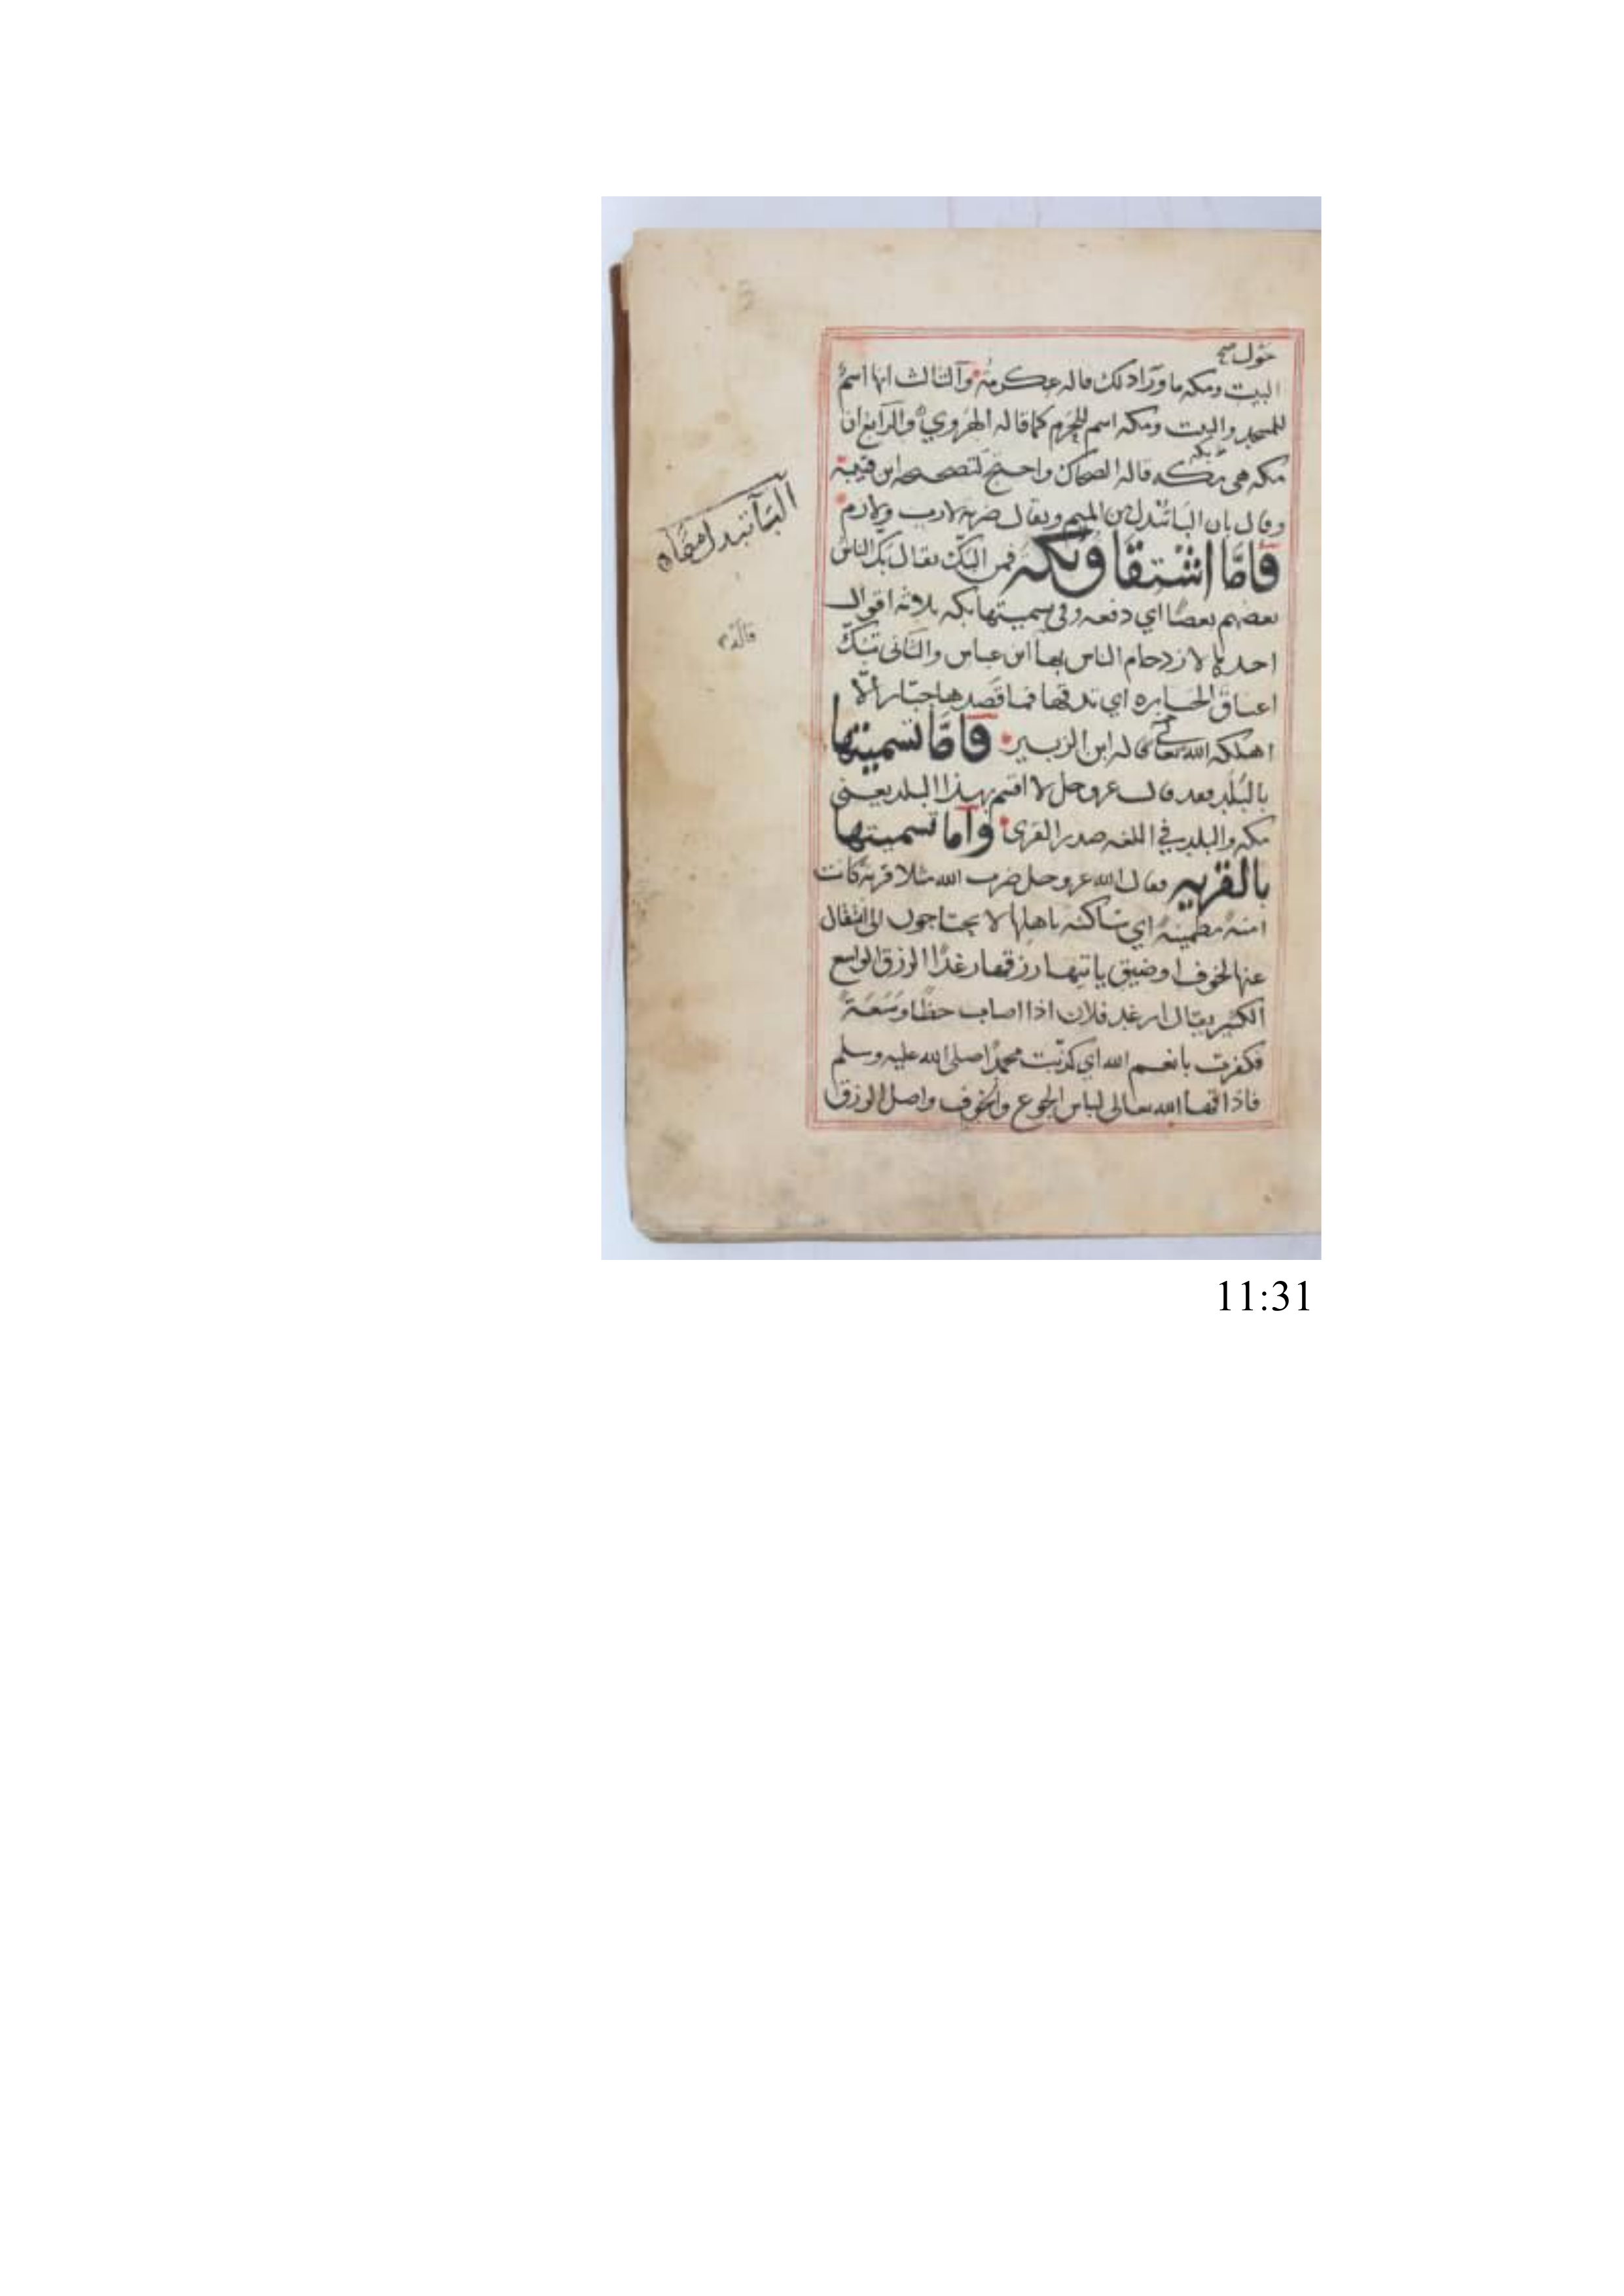 حول صح
البيت ومكه ما ورآ ذلك قاله عكرمة والثالث انها اسم
للمسجد والبيت ومكه اسم للحرم كما قاله الهروي والرابع ان
بكه
مكه هي بكه قاله الضحاك واحتج لتصحيحه ابن قتيبة
وقال بان البا تبدل من الميم ويقال ضربة لازب ولازم
فامّا اشتقاق بكه فمن البكّ يقال بكّ الناس
بعضهم بعضًا اي دفعه وفي تسميتها بكه ثلاثة اقوال
احدها لازدحام الناس بها ابن عباس والثانى تبكّ
اعناق الجبابره اي تدقها فما قصدها جبّار الّا
اهلكه الله تعالى قاله ابن الزبير فامّا تسميتها
بالبلد فقد قال عز وجل لا اقسم بهذا البلد يعنى
مكه والبلد في اللغه صدر القرى وأما تسميتها
بالقريه فقال الله عز وجل ضرب الله مثلا قرية كانت
امنةً مطمينةً اي ساكنه باهلها لا يحتاجون الى انتقال
عنها لخوف او ضيق ياتيها رزقها رغدًا الرزق الواسع
الكثير يقال ارغد فلان اذا اصاب حظًا وسَعَةً
فكفرت بانعم الله اي كذّبت محمدًا صلى الله عليه وسلم
فاذاقها الله تعالى لباس الجوع والخوف واصل الرزق
البآ تبدل
قاله
11:31